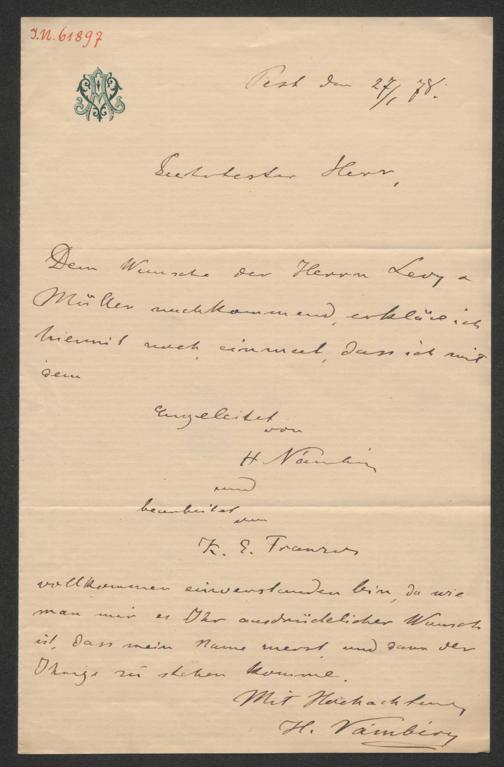 J.N. 61897
Pest den 27/1 78.
Geehrtester Herr,
Dem Wunsche der Herrn Levy &
Müller nachkommend, erkläre ich
hiermit noch einmal, dass ich mit
dem
Eingeleitet
von
H Vámbéry
und
bearbeitet
von
K. E. Franzos
vollkommen einverstanden bin, da wie
man mir es Ihr ausdrücklicher Wunsch
ist, dass mein Name zuerst und dann der
Ihrige zu stehen komme.
Mit Hochachtung
H. Vámbéry